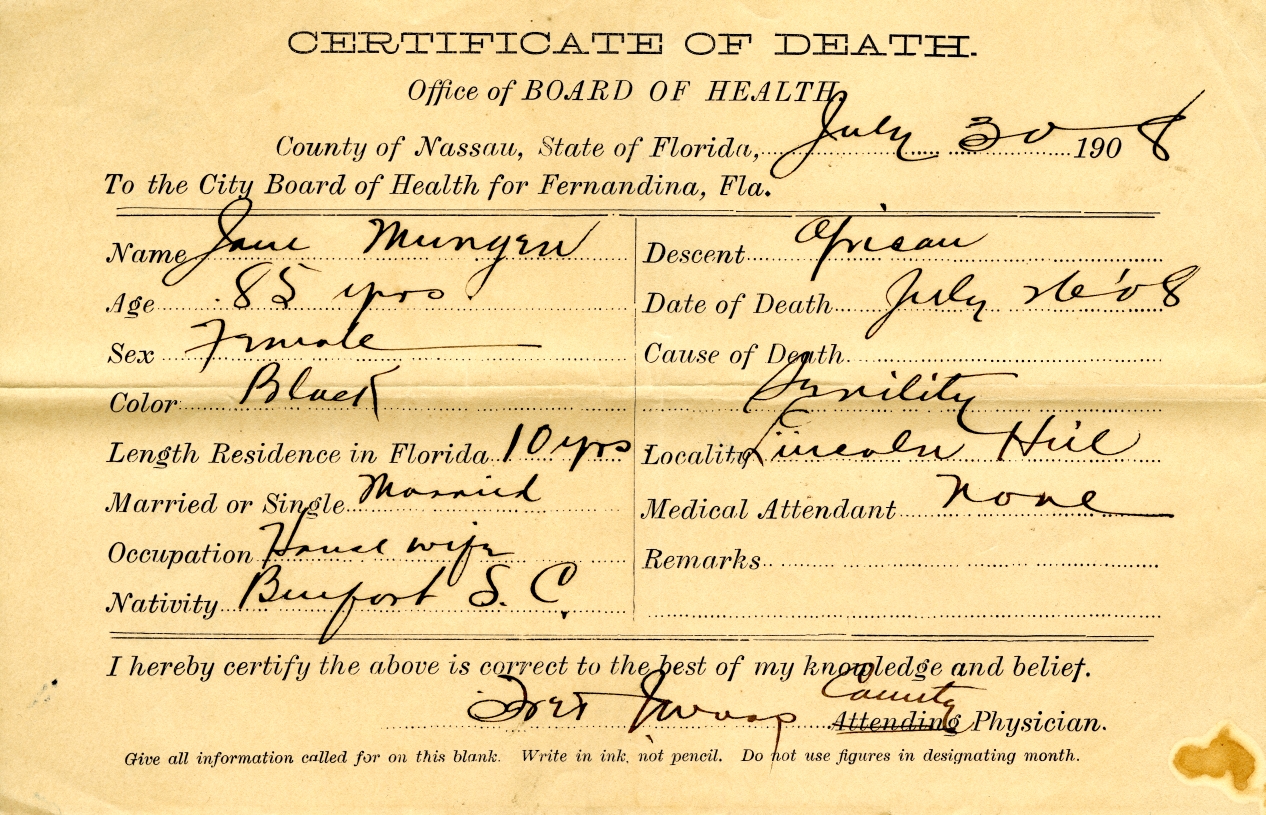 CERTIFICATE OF DEATH.
Office of BOARD OF HEALTH,
County of Nassau, State of Florida, July 30 1908
To the City Board of Health for Fernandina, Fla.
Name Jane Mungen
Age 85 yrs
Sex Female
Color Black
Length Residence in Florida 10 yrs
Married or Single Married
Occupation House wife
Nativity Beufort S. C.
Descent African
Date of Death July 26 '08
Cause of Death
Senility
Locality Lincoln Hill
Medical Attendant none
Remarks
I hereby certify the above is correct to the best of my knowledge and belief.
County
Attending Physician.
Give all information called for on this blank. Write in ink, not pencil. Do not use figures in designating month.